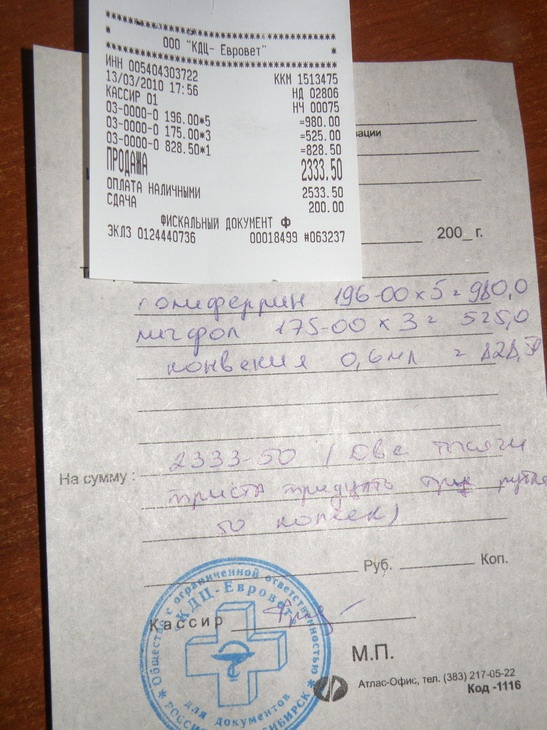 ********************************
* ООО "КДЦ- Евровет" *
********************************
ИНН 005404303722 ККМ 1513475
13/03/2010 17:56 НД 02806
КАССИР 01 НЧ 00075
03-0000-0 196.00*5 =980.00
03-0000-0 175.00*3 =525.00
03-0000-0 828.50*1 =828.50
ПРОДАЖА 2333.50
ОПЛАТА НАЛИЧНЫМИ 2533.50
СДАЧА 200.00
ФИСКАЛЬНЫЙ ДОКУМЕНТ Ф
ЭКЛЗ 0124440736 00018499 #063237
зации
200_ г.
196-00 х 5 = 980,0
лигфол 175-00 х 3 = 525,0
конвения 0,6 мл = 828,50
На сумму : 2333-50 (Две тысячи
триста тридцать три рубля
50 копеек)
Руб. Коп.
Кассир
М.П.
Общество с ограниченной ответственностью
«КДЦ-Евровет»
для документов
Атлас-Офис, тел. (383) 217-05-22
Код -1116